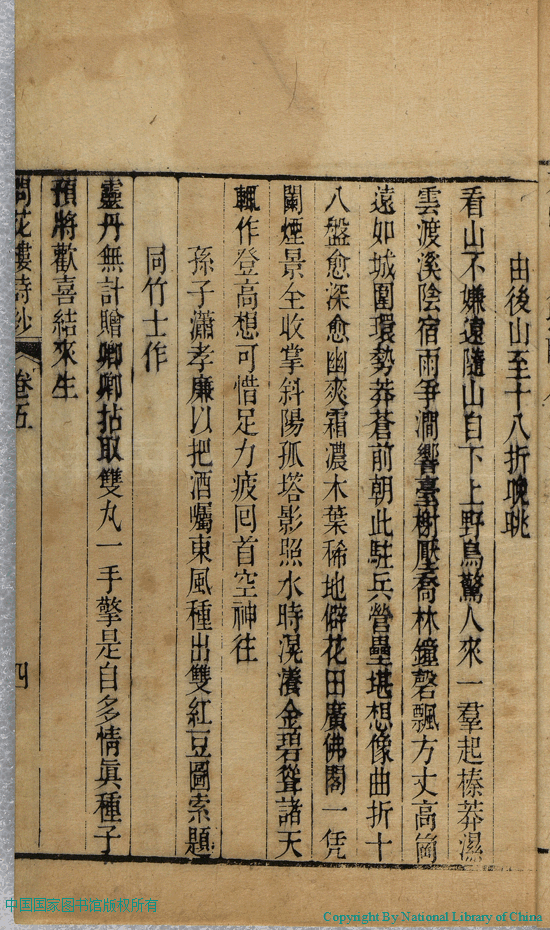 由後山至十八折晚眺
看山不嫌遠隨山自下上野鳥驚人來一羣起榛莽濕
雲渡溪陰宿雨爭澗響臺榭壓喬林鐘磬飄方丈高崗
遠如城圍環勢莽蒼前朝此駐兵營壘堪想像曲折十
八盤愈深愈幽爽霜濃木葉稀地僻花田廣佛閣一凭
闌煙景全收掌斜陽孤塔影照水時滉瀁金碧聳諸天
輒作登高想可惜足力疲回首空神往
孫子瀟孝廉以把酒囑東風種出雙紅豆圖索題
同竹士作
靈丹無計贈卿卿拈取雙丸一手擎是自多情眞種子
預將歡喜結來生
問花樓詩鈔 卷五 四
中国国家图书馆版权所有
Copyright By National Library of China